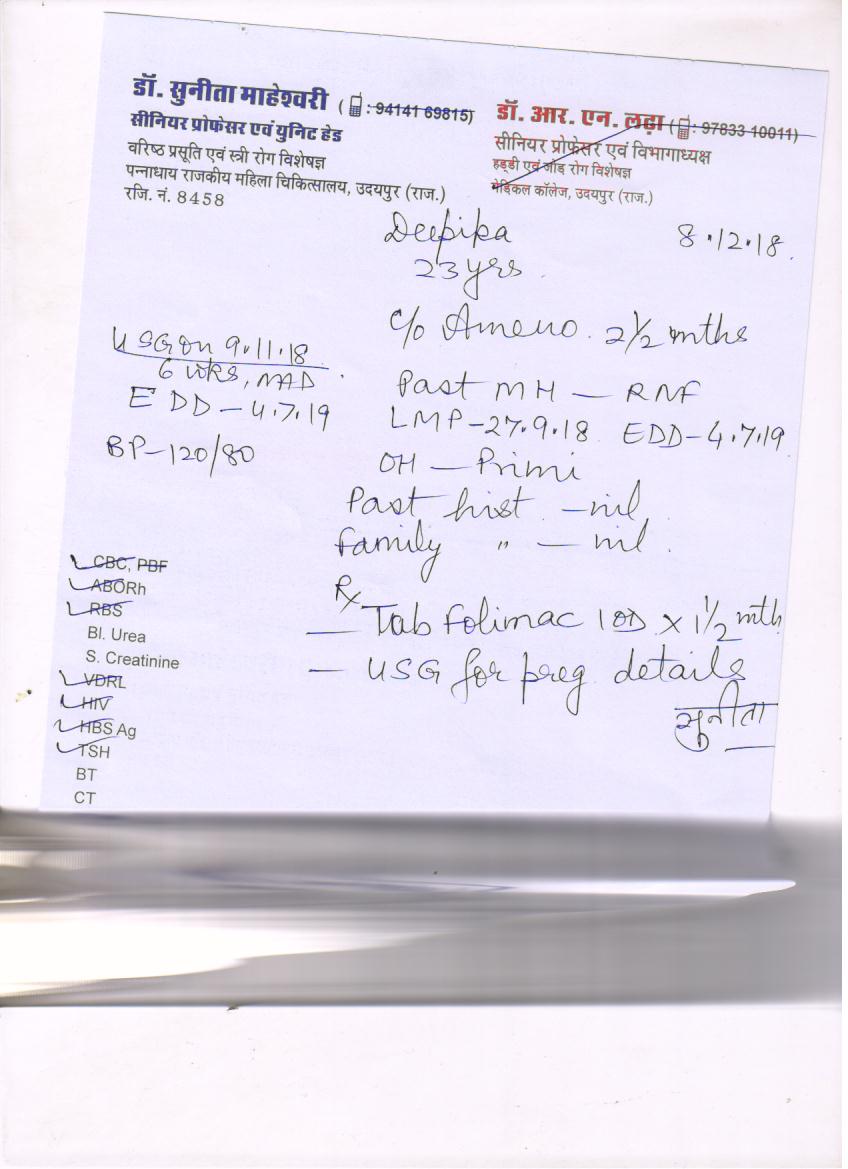 डॉ. सुनीता माहेश्वरी ( : 94141 69815)
सीनियर प्रोफेसर एवं युनिट हेड
वरिष्ठ प्रसूति एवं स्त्री रोग विशेषज्ञ
पन्नाधाय राजकीय महिला चिकित्सालय, उदयपुर (राज.)
रजि. नं. 8458
डॉ. आर. एन. लढ़ा ( : 97833 10011)
सीनियर प्रोफेसर एवं विभागाध्यक्ष
हड्डी एवं जोड़ रोग विशेषज्ञ
मेडिकल कॉलेज, उदयपुर (राज.)
Deepika 8.12.18.
23 yrs
c/o Ameno. 2½ mths
USG on 9.11.18
6 wks, NAD
EDD - 4.7.19
BP - 120/80
Past MH - RNF
LMP - 27.9.18 EDD - 4.7.19
OH - Primi
Past hist - nil
Family " - nil.
Rx
- Tab Folimac 1 OD x 1½ mth
- USG for preg details
सुनीता
CBC, PBF
ABORh
RBS
Bl. Urea
S. Creatinine
VDRL
HIV
HBS Ag
TSH
BT
CT